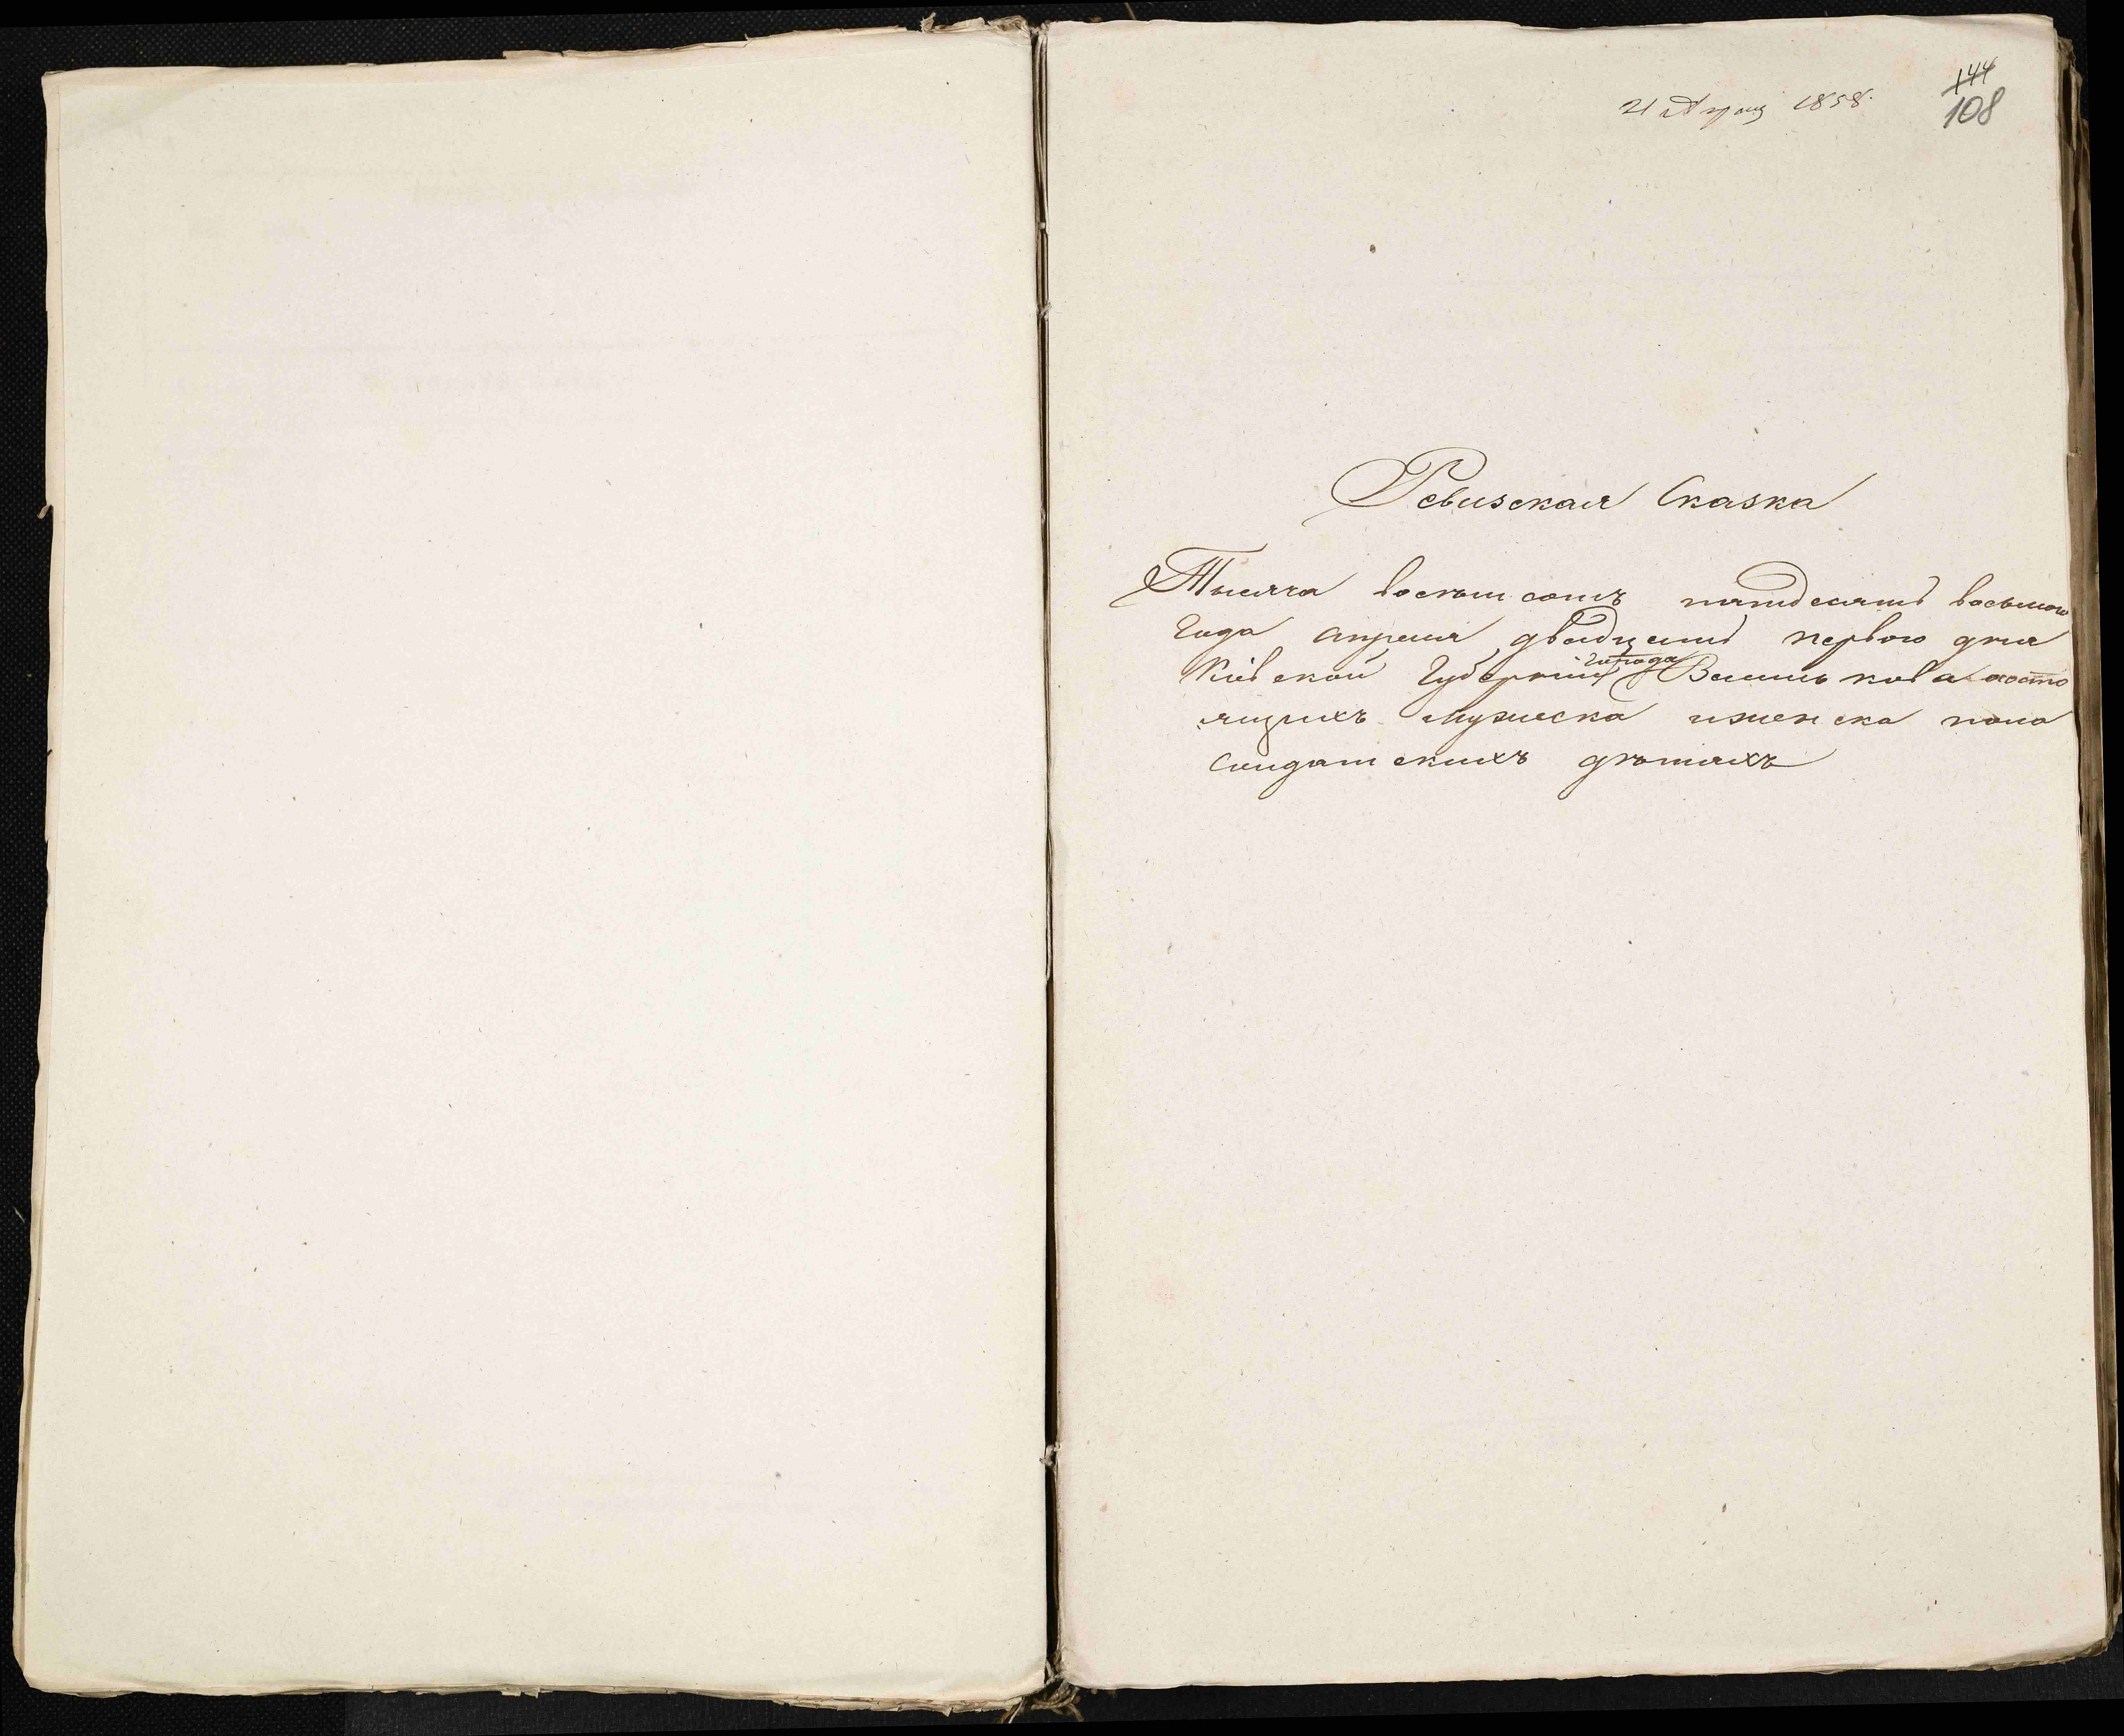 21 Апрля 1858.
144
108
Ревизская Сказка
Тысяча восемьсотъ пятдесятъ восьмого
Года апреля двадцать первого дня
Кіевской Губерніи города Василькова состо
ящихъ мужеска иженска пола
солдатскихъ дѣтяхъ